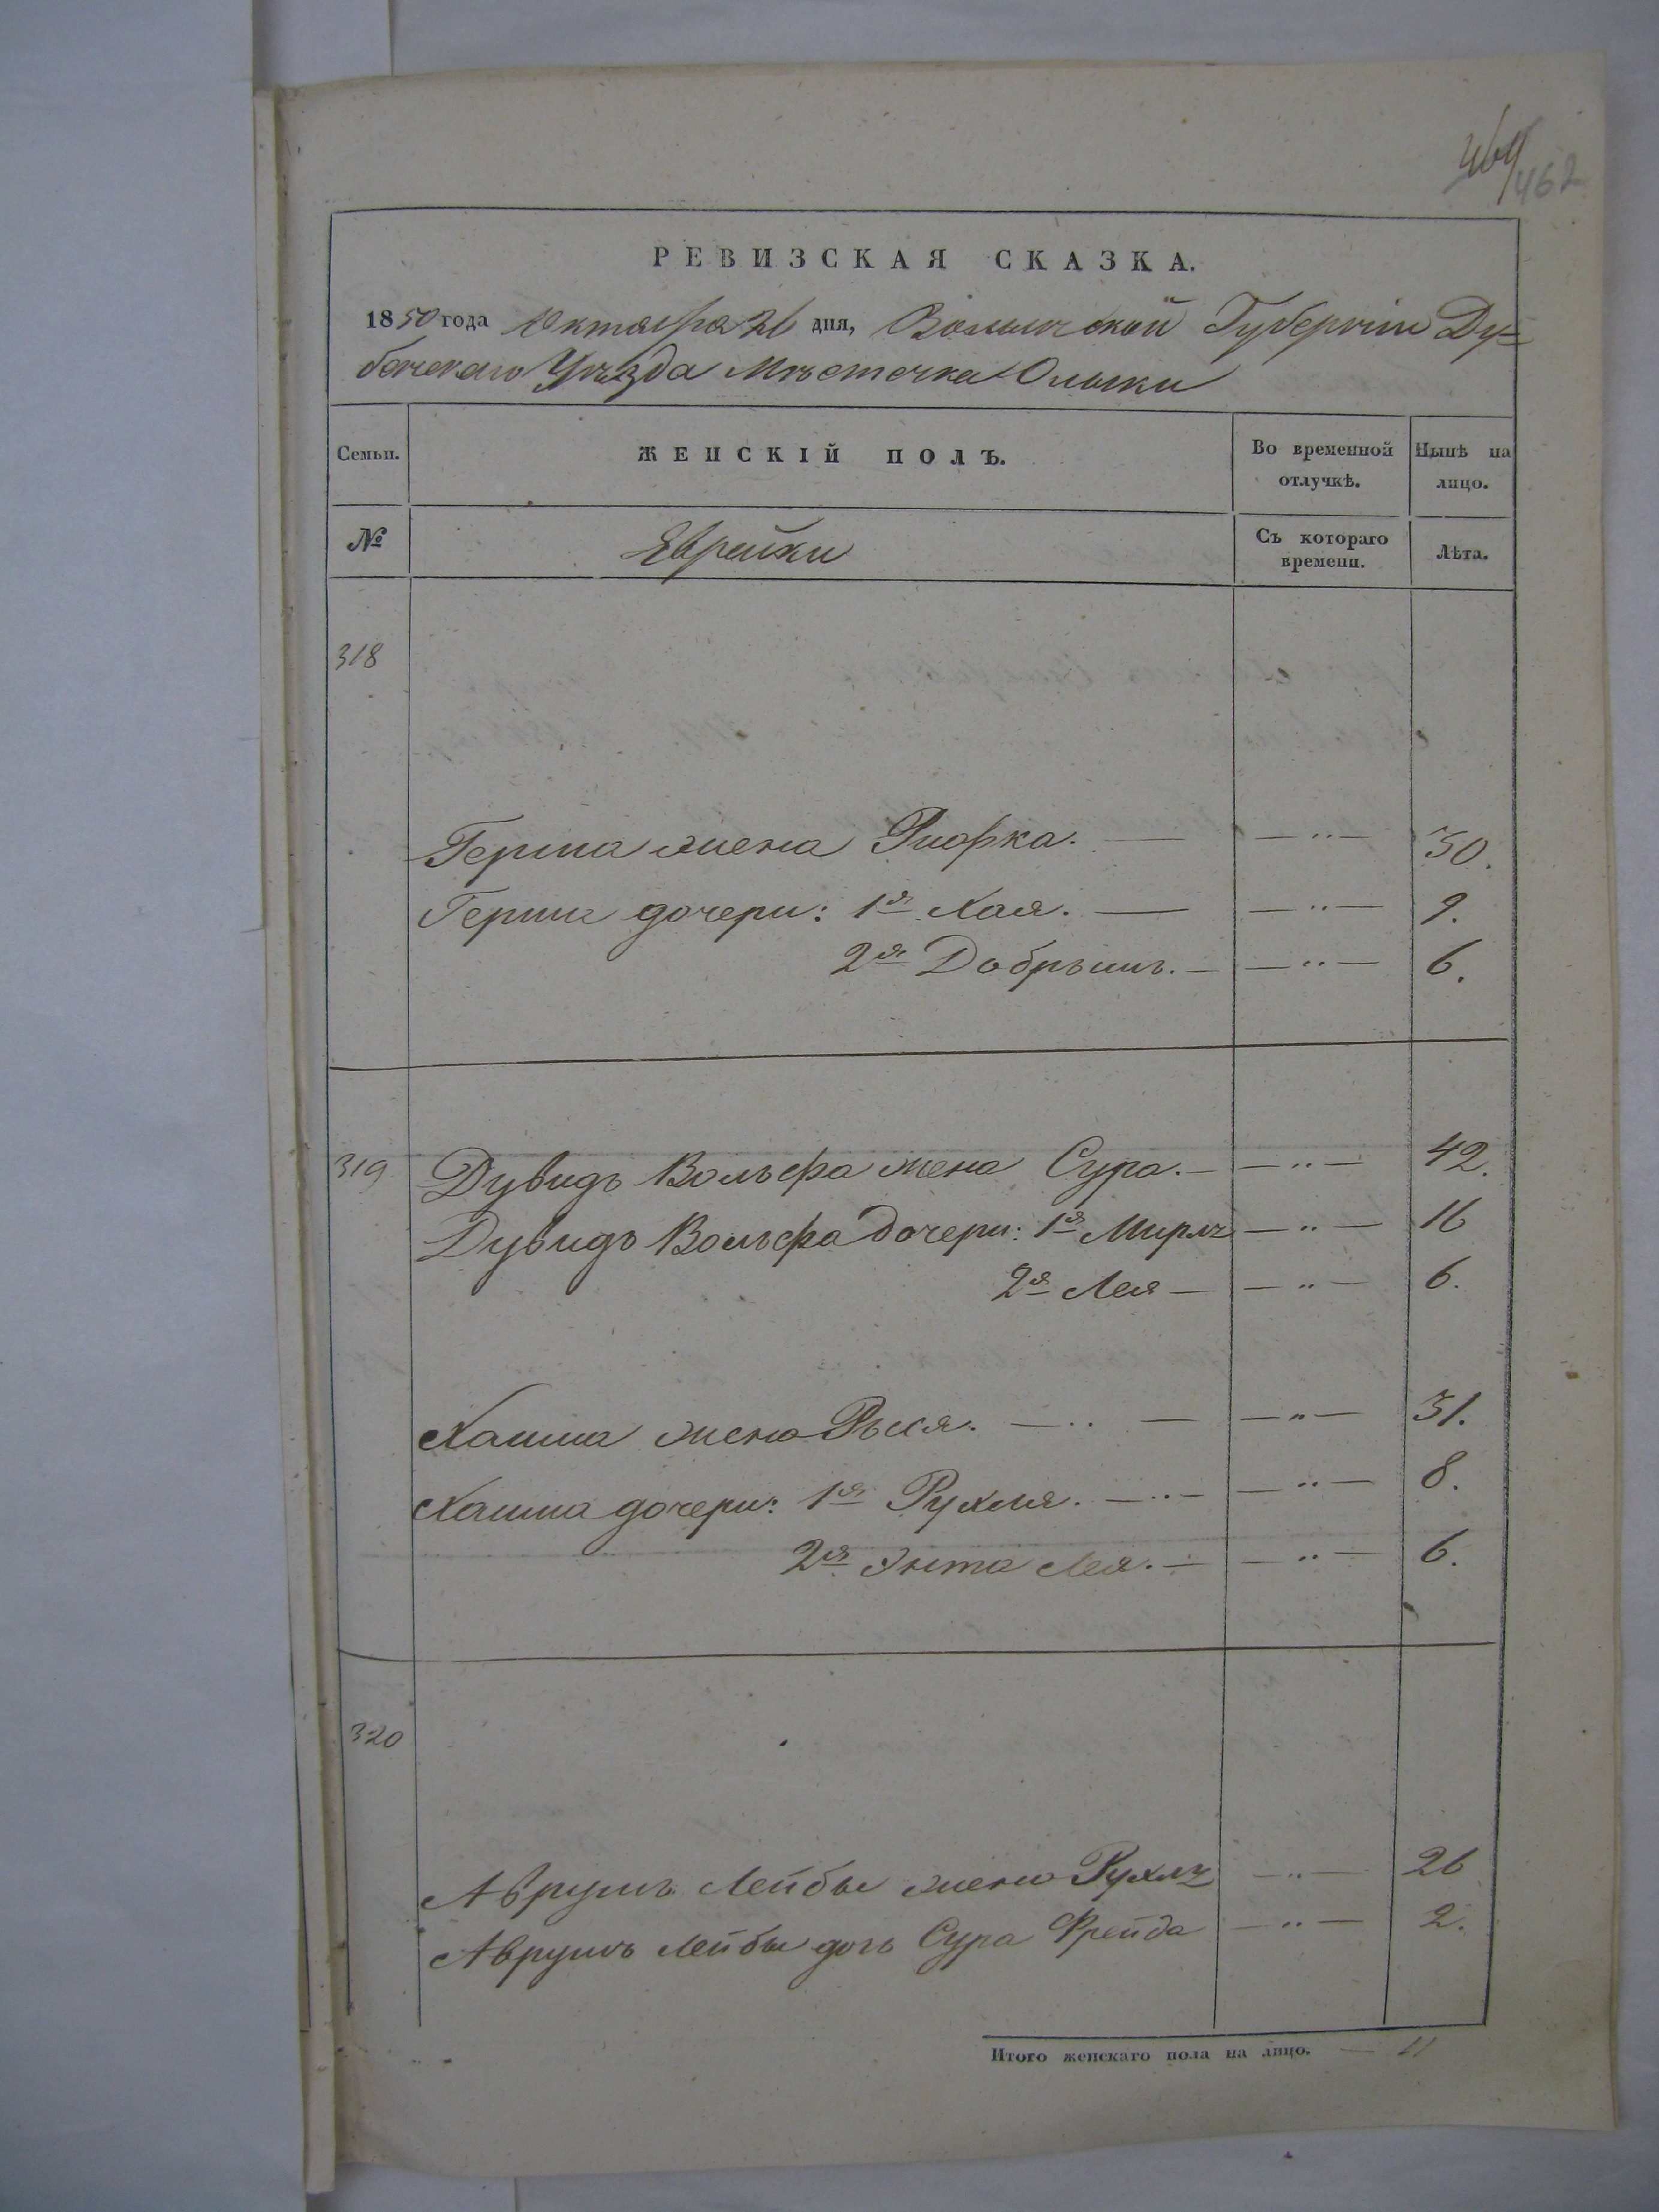 462
РЕВИЗСКАЯ СКАЗКА.
1850 года Октября 26 дня, Волынской Губерніи Ду=
бенскаго Уѣзда Мѣстечка Олыки
Семьи. ЖЕНСКІЙ ПОЛЪ. Во временной отлучкѣ. Нынѣ на лицо.
№ Еврейки Съ котораго времени. Лѣта.
318
Герша жена Рифка. — —〃— 30.
Герша дочери: 1я Хая. — —〃— 9.
2я Добрышъ. — —〃— 6.
319 Дувидъ Вольфа жена Сура. — —〃— 42.
Дувидъ Вольфа дочери: 1я Мирлъ —〃— 16
2я Лея — —〃— 6.
Хаима жена Рыся. —〃— —〃— 31.
Хаима дочери: 1я Рухля. —〃— —〃— 8.
2я Энта Лея. — —〃— 6.
320
Аврумъ Лейбы жена Рухлъ —〃— 26
Аврумъ Лейбы дочь Сура Фрейда —〃— 2.
Итого женскаго пола на лицо. — 11